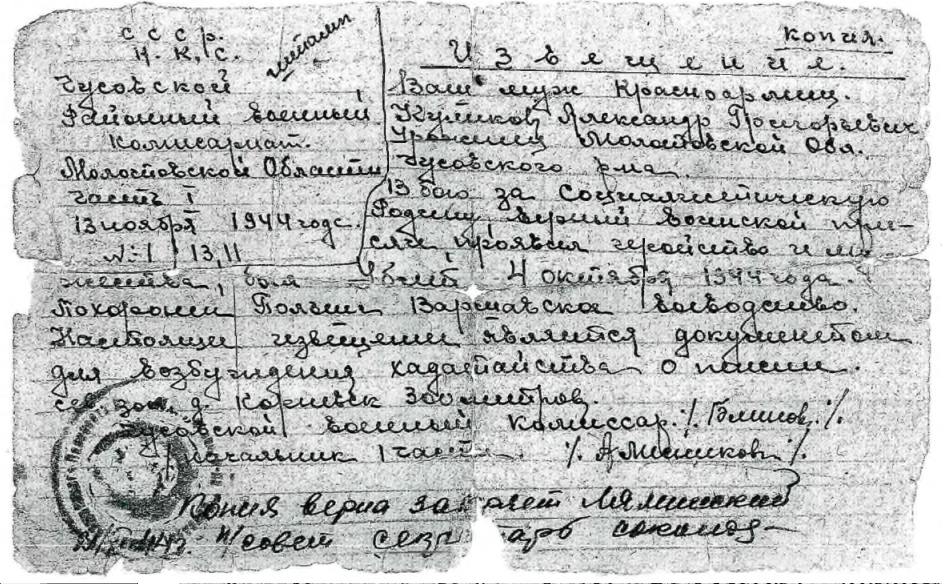 С С С р.
Н. К. С.
читали
Чусовской
Районный военный
Комисариат.
Молотовской Области
часть I
13 ноября 1944 годс.
№ 1 / 13,11
копия.
И з в е щ е н и е.
Ваш муж Красноармиц.
Куликов Александр Григорьевич
Молотовской Обл.
Чусовского р-на.
13 бою за Социалистическую
Родину верний воинской при-
сяги проявил геройство и му
жества, был Убит 4 октября 1944 года.
Похоронен Польши Варшавское воеводство.
Настоящи извещени является документом
для возбуждения хадатайства о пенсии.
д. 300 митров.
Чусовской военный комиссар. /.
Начальник 1 части. /. /.
Копия верна Лямински
/совет